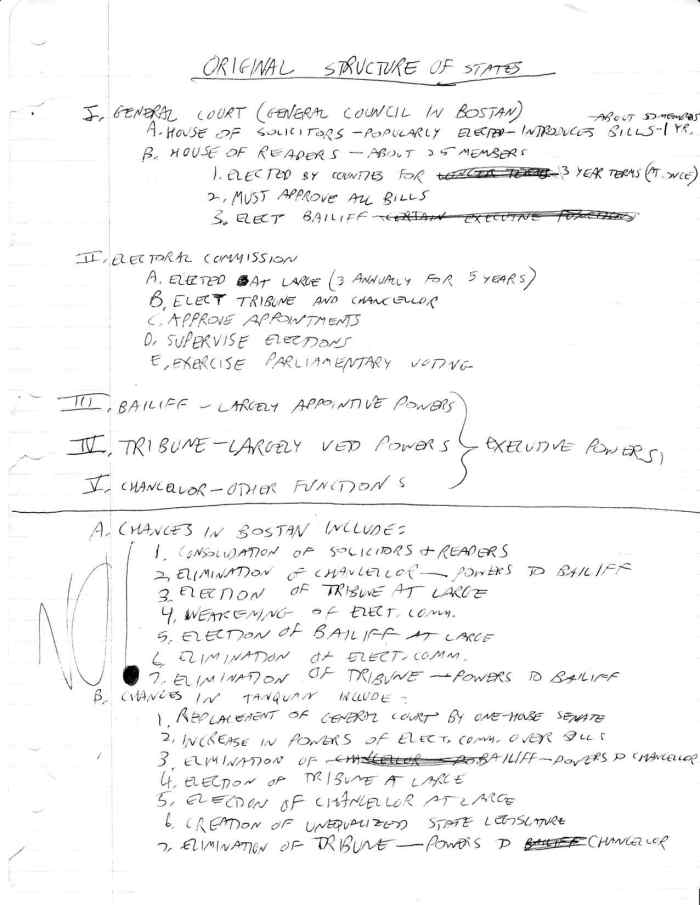 ORIGINAL STRUCTURE OF STATES
I. GENERAL COURT (GENERAL COUNCIL IN BOSTAN)
- ABOUT 50 MEMBERS
A. HOUSE OF SOLICITORS - POPULARLY ELECTED - INTRODUCES BILLS - 1 YR.
B. HOUSE OF READERS - ABOUT 25 MEMBERS
1. ELECTED BY COUNTIES FOR LONGER TERMS 3 YEAR TERMS (AT ONCE)
2. MUST APPROVE ALL BILLS
3. ELECT BAILIFF - CERTAIN EXECUTIVE FUNCTIONS
II. ELECTORAL COMMISSION
A. ELECTED AT LARGE (3 ANNUALLY FOR 5 YEARS)
B. ELECT TRIBUNE AND CHANCELLOR
C. APPROVE APPOINTMENTS
D. SUPERVISE ELECTIONS
E. EXERCISE PARLIAMENTARY VOTING
III. BAILIFF - LARGELY APPOINTIVE POWERS
IV. TRIBUNE - LARGELY VETO POWERS EXECUTIVE POWERS
V. CHANCELLOR - OTHER FUNCTIONS
A. CHANGES IN BOSTAN INCLUDE:
1. CONSOLIDATION OF SOLICITORS + READERS
2. ELIMINATION OF CHANCELLOR - POWERS TO BAILIFF
3. ELECTION OF TRIBUNE AT LARGE
4. WEAKENING OF ELECT. COMM.
5. ELECTION OF BAILIFF AT LARGE
6. ELIMINATION OF ELECT. COMM.
7. ELIMINATION OF TRIBUNE - POWERS TO BAILIFF
NO
B. CHANGES IN TANQUAN INCLUDE:
1. REPLACEMENT OF GENERAL COURT BY ONE-HOUSE SENATE
2. INCREASE IN POWERS OF ELECT. COMM. OVER BILLS
3. ELIMINATION OF CHANCELLOR - PO BAILIFF - POWERS TO CHANCELLOR
4. ELECTION OF TRIBUNE AT LARGE
5. ELECTION OF CHANCELLOR AT LARGE
6. CREATION OF UNEQUALIZED STATE LEGISLATURE
7. ELIMINATION OF TRIBUNE - POWERS TO BAILIFF CHANCELLOR